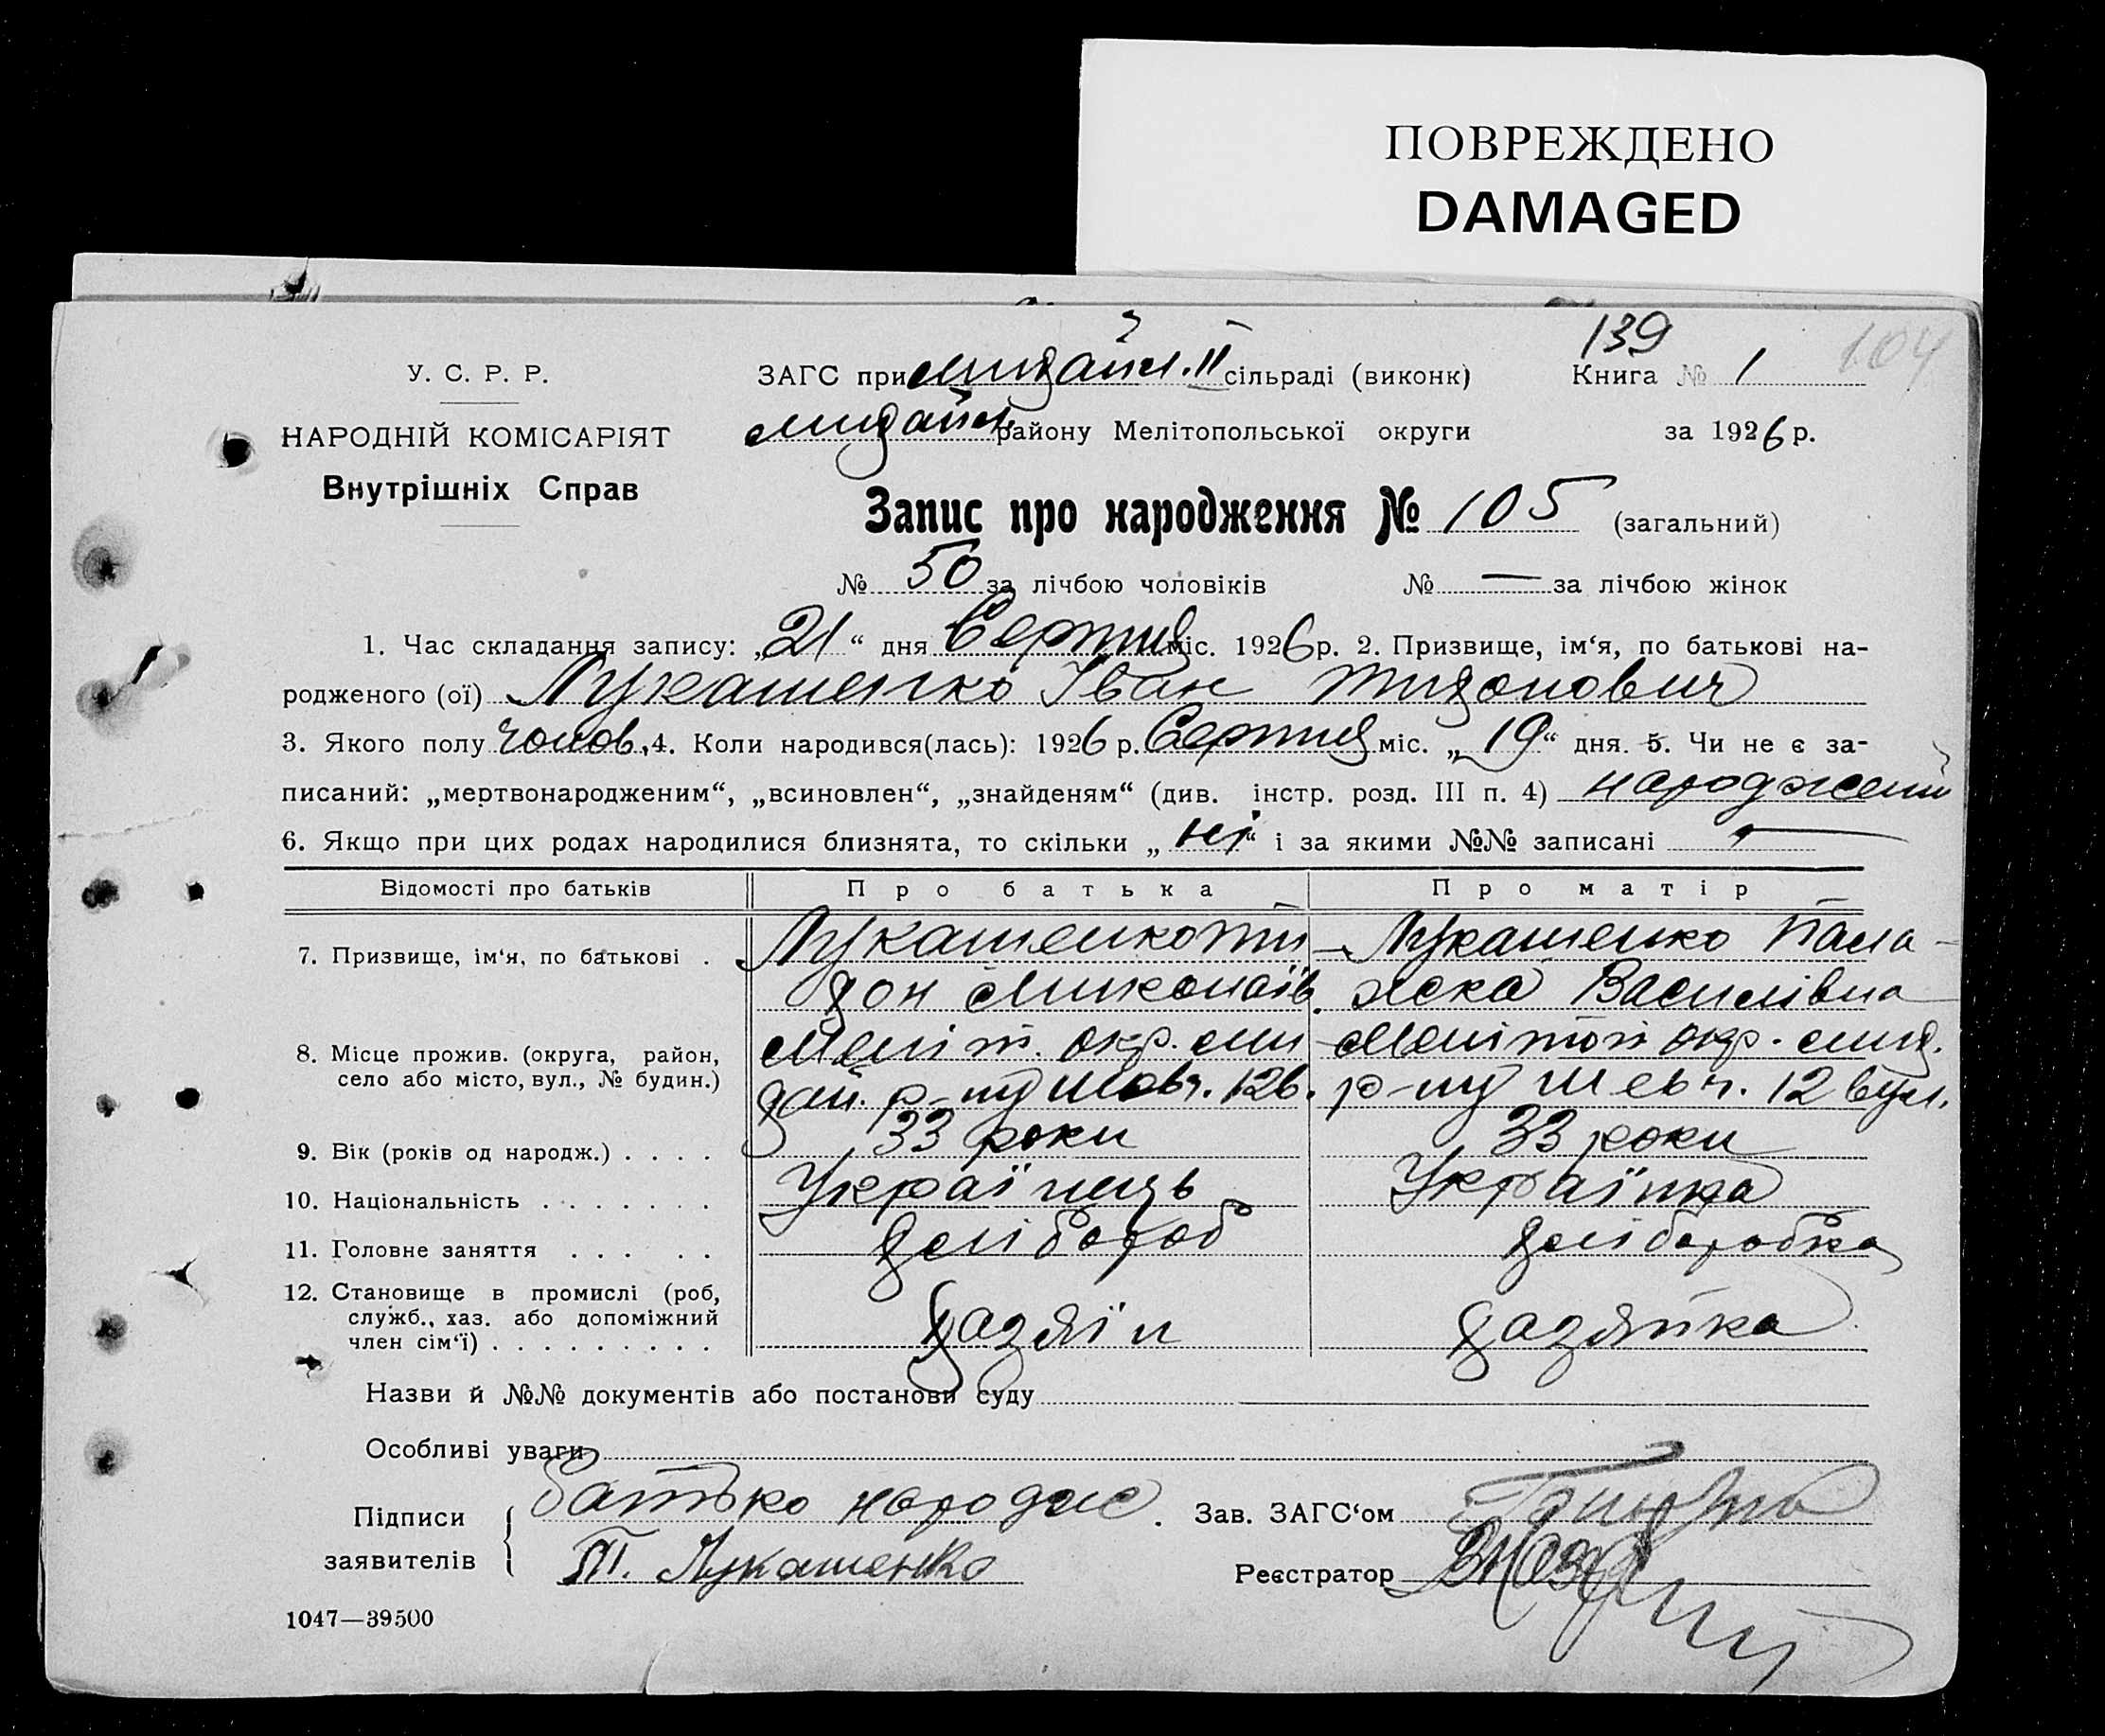 ПОВРЕЖДЕНО
DAMAGED
139
104
У. С. Р. Р.
ЗАГС при Михайл. ІІ сільраді (виконк)
Книга № 1
НАРОДНІЙ КОМІСАРІЯТ
Михайл. району Мелітопольської округи
за 1926 р.
Внутрішніх Справ
Запис про народження № 105 (загальний)
№ 50 за лічбою чоловіків № — за лічбою жінок
1. Час складання запису: „21“ дня Серпня міс. 1926 р. 2. Призвище, ім‘я, по батькові на-
родженого (ої) Лукашенко Іван Тихонович
3. Якого полу чолов. 4. Коли народився(лась): 1926 р. Серпня міс. „19“ дня. 5. Чи не є за-
писаний: „мертвонародженим“, „всиновлен“, „знайденям“ (див. інстр. розд. III п. 4) народжений
6. Якщо при цих родах народилися близнята, то скільки „ні“ і за якими №№ записані —
Відомості про батьків Про батька Про матір
7. Призвище, ім‘я, по батькові . Лукашенко Ти- Лукашенко Пала-
хон Миколаїв. жка Василівна
8. Місце прожив. (округа, район, Меліт. окр. Ми- Мелітоп окр. Мих.
село або місто, вул., № будин.) хай. р-ну Шевч. 12 в. р-ну Шевч. 12 вул.
9. Вік (років од народж.) . . . . 33 роки 33 роки
10. Національність . . . . . . . Українець Українка
11. Головне заняття . . . . . хлібороб хліборобка
12. Становище в промислі (роб,
служб., хаз. або допоміжний хазяїн хазяйка
член сім‘ї) . . . . . . . . .
Назви й №№ документів або постанови суду
Особливі уваги
Підписи батько народже. Зав. ЗАГС‘ом
заявителів Т. Лукашенко Реєстратор
1047—39500